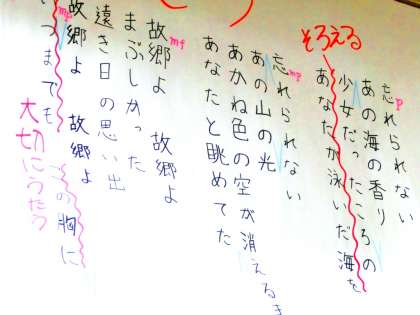 忘れられない
あの海の香り
少女だったころの
あなたが泳いだ海を
そろえる
忘れられない
あの山の光
あかね色の空が消えるま
あなたと眺めてた
故郷よ 故郷よ
まぶしかった
遠き日の思い出
故郷よ 故郷よ
この胸に
いつまでも
大切にうたう
p
mp
mf
mp